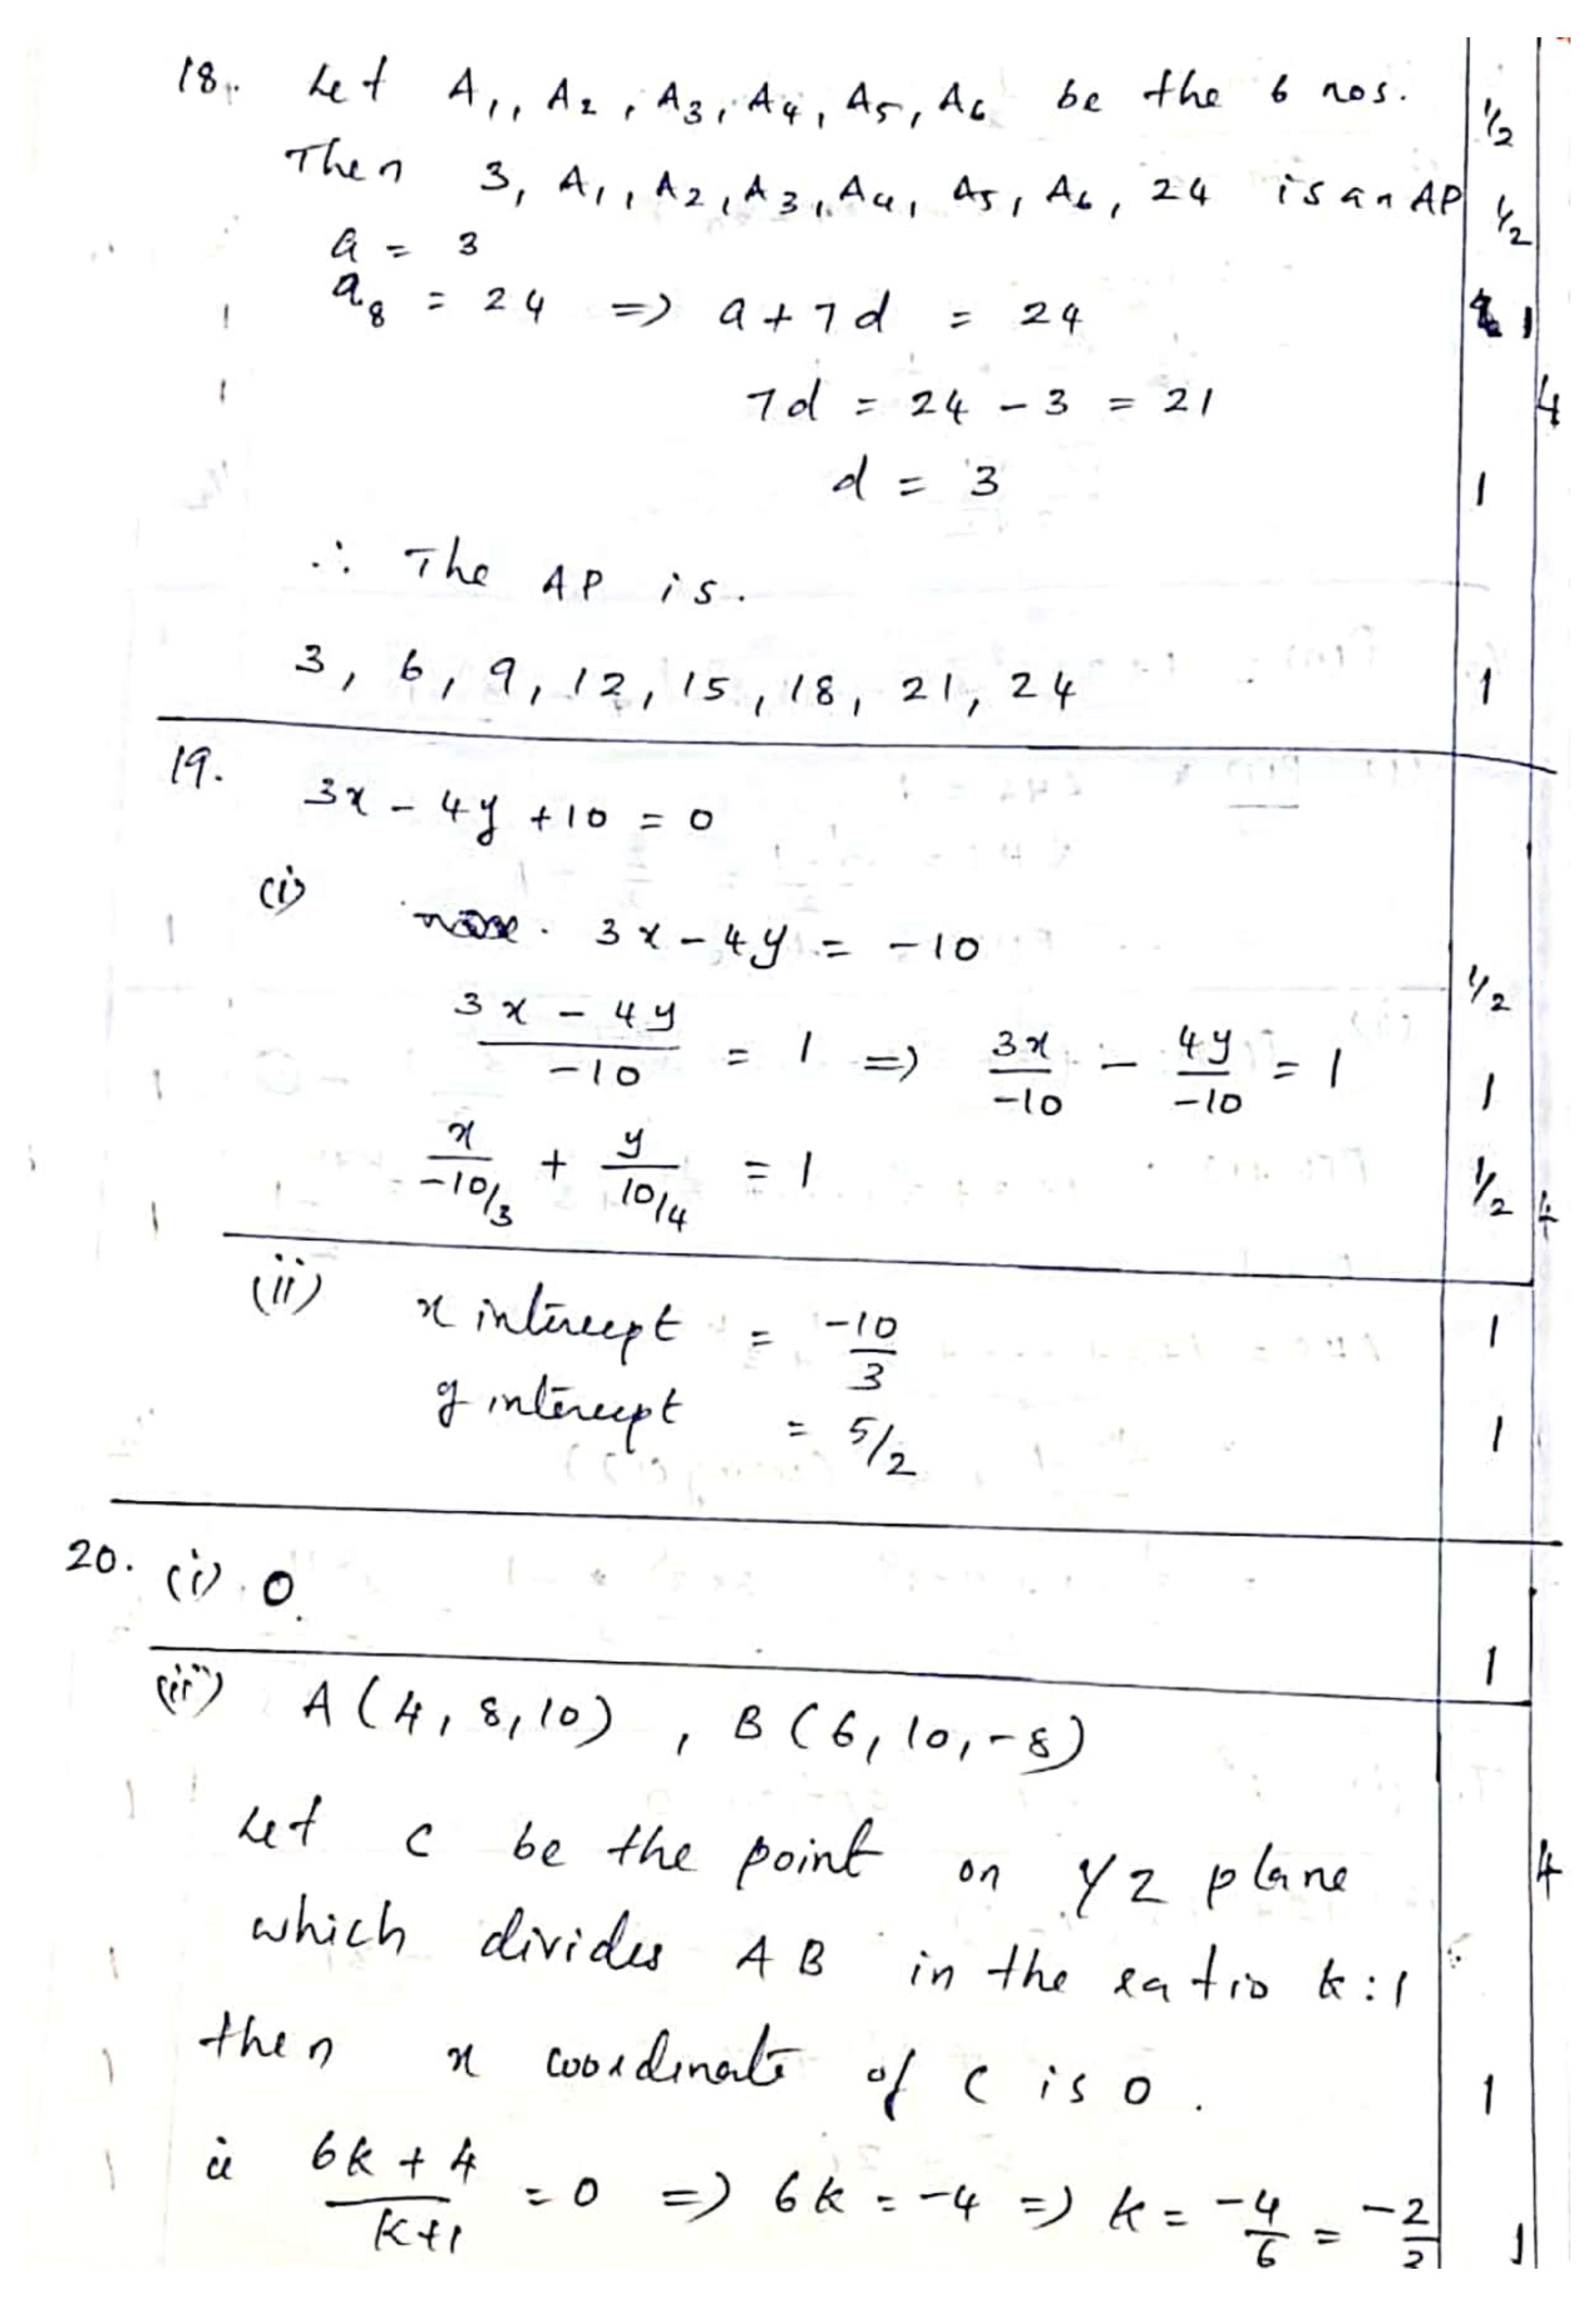 18. Let A1, A2, A3, A4, A5, A6 be the 6 nos. 1/2
Then 3, A1, A2, A3, A4, A5, A6, 24 is an AP 1/2
a = 3
a8 = 24 => a + 7d = 24 1
7d = 24 - 3 = 21 4
d = 3 1
∴ The AP is.
3, 6, 9, 12, 15, 18, 21, 24 1
19. 3x - 4y + 10 = 0
(i) 3x - 4y = -10 1/2
(3x - 4y)/-10 = 1 => 3x/-10 - 4y/-10 = 1 1
x/(-10/3) + y/(10/4) = 1 1/2 4
(ii) x intercept = -10/3 1
y intercept = 5/2 1
20. (i) 0. 1
(ii) A(4, 8, 10), B(6, 10, -8)
Let C be the point on YZ plane 4
which divides AB in the ratio k:1
then x coordinate of C is 0. 1
ie (6k + 4)/(k+1) = 0 => 6k = -4 => k = -4/6 = -2/3 1